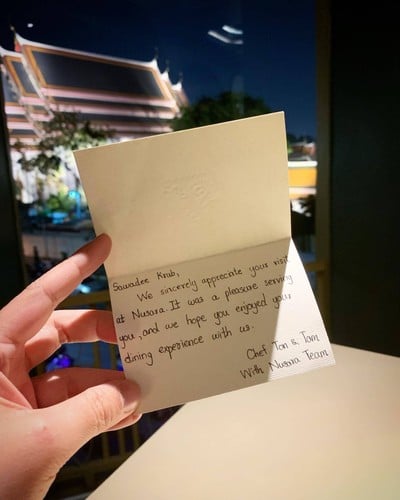 Sawadee Krub,
We sincerely appreciate your visit
at Nusara. It was a pleasure serving
you, and we hope you enjoyed your
dining experience with us.
Chef Ton & Tam
With Nusara Team